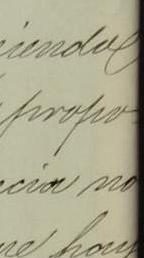 iendo
propo
ncia no
ue hay